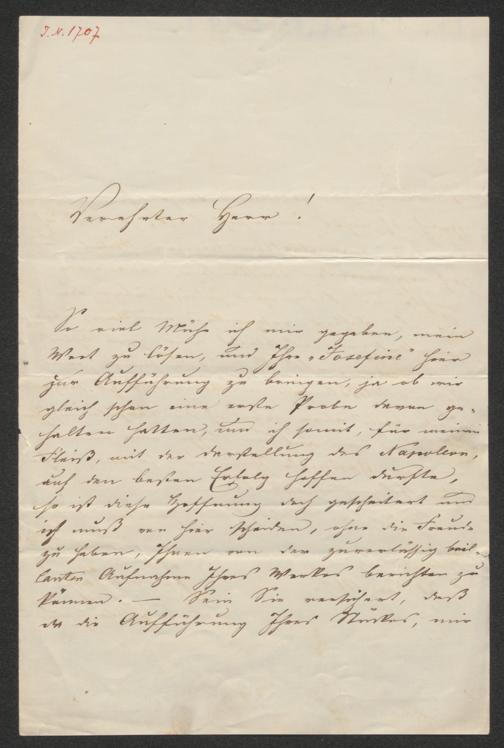 J. N. 1707
Verehrter Herr!
So viel Mühe ich mir gegeben, mein
Wort zu lösen, und Ihre „Josefine" hier
zur Aufführung zu bringen, ja ob wir
gleich schon eine erste Probe davon ge-
halten hatten, und ich somit, für meinen
Fleiß, mit der Darstellung des Napoleon,
auf den besten Erfolg hoffen durfte,
so ist diese Hoffnung doch gescheitert und
ich muß von hier scheiden, ohne die Freude
zu haben, Ihnen von der zuverlässig bril-
lanten Aufnahme Ihres Werkes berichten zu
können. — Sein Sie versichert, daß
die Aufführung Ihres Stückes, mir